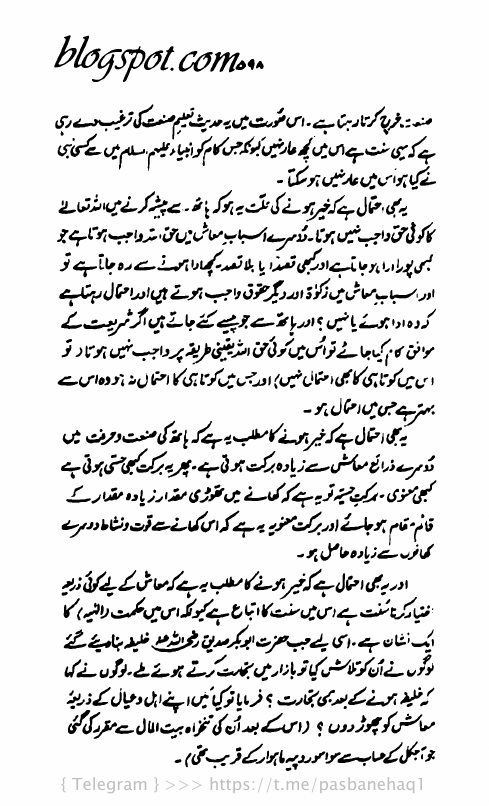 blogspot.com ۵۹۸
صنعت خرچ کرتا رہتا ہے۔ اس صورت میں یہ حدیث تعلیم صنعت کی ترغیب دے رہی
ہے کہ یہی سنت ہے اس میں کچھ عار نہیں کیونکہ جس کام کو انبیاء علیہم السلام میں سے کسی نبی
نے کیا ہو اس میں عار نہیں ہو سکتا۔
یہ بھی احتمال ہے کہ خیر ہونے کی علت یہ ہو کہ ہاتھ سے پیشہ کرنے میں اللہ تعالےٰ
کا کوئی حق واجب نہیں ہوتا۔ دوسرے اسباب معاش میں حق اللہ واجب ہوتا ہے جو
کبھی پورا ادا ہو جاتا ہے اور کبھی قصداً یا بلا قصد کچھ ادا ہونے سے رہ جاتا ہے تو
اور اسباب معاش میں زکوٰۃ اور دیگر حقوق واجب ہوتے ہیں اور احتمال رہتا ہے
کہ وہ ادا ہوئے یا نہیں؟ اور ہاتھ سے جو پیسے کئے جاتے ہیں اگر شریعت کے
موافق کام کیا جائے تو اُس میں کوئی حق اللہ یقینی طریقہ پر واجب نہیں ہوتا (تو
اس میں کوتاہی کا بھی احتمال نہیں) اور جس میں کوتاہی کا احتمال نہ ہو وہ اس سے
بہتر ہے جس میں احتمال ہو۔
یہ بھی احتمال ہے کہ خیر ہونے کا مطلب یہ ہے کہ ہاتھ کی صنعت و حرفت میں
دوسرے ذرائع معاش سے زیادہ برکت ہوتی ہے۔ پھر یہ برکت کبھی حسی ہوتی ہے
کبھی معنوی۔ برکتِ حسیہ تو یہ ہے کہ کھانے میں تھوڑی مقدار زیادہ مقدار کے
قائم مقام ہو جائے اور برکت معنویہ یہ ہے کہ اس کھانے سے قوت و نشاط دوسرے
کھانوں سے زیادہ حاصل ہو۔
اور یہ بھی احتمال ہے کہ خیر ہونے کا مطلب یہ ہے کہ معاش کے لیے کوئی ذریعہ
اختیار کرنا سُنت ہے اس میں سنت کا اتباع ہے کیونکہ اس میں حکمت (الٰہیہ) کا
ایک نشان ہے۔ اسی لیے جب حضرت ابوبکر صدیق رضی اللہ عنہ خلیفہ بنا دیئے گئے
لوگوں نے اُن کو تلاش کیا تو بازار میں تجارت کرتے ہوئے ملے۔ لوگوں نے کہا
کہ خلیفہ ہونے کے بعد بھی تجارت؟ فرمایا تو کیا میں اپنے اہل و عیال کے ذریعۂ
معاش کو چھوڑ دوں؟ (اس کے بعد اُن کی تنخواہ بیت المال سے مقرر کی گئی
جو آجکل کے حساب سے سوا سو روپیہ ماہوار کے قریب تھی)۔
{ Telegram } >>> https://t.me/pasbanehaq1